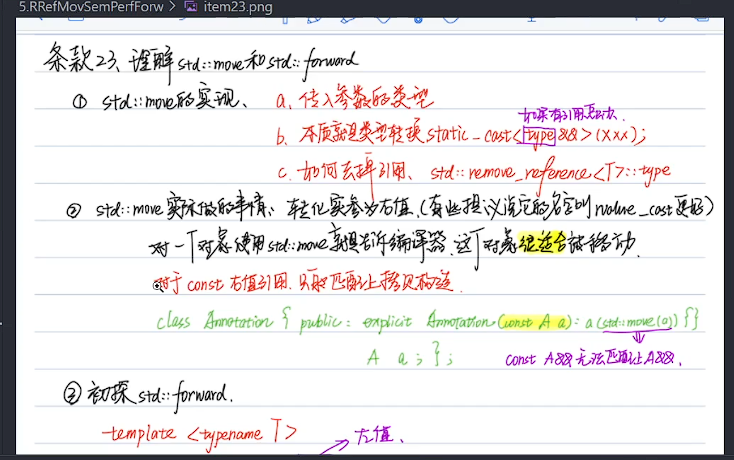 5.RRefMovSemPerfForw > item23.png
条款23、理解std::move和std::forward
① std::move的实现、 a. 传入参数的类型
如果有引用要去
b. 本质就是类型转换 static_cast<type&&>(xxx);
c. 如何去掉引用、 std::remove_reference<T>::type
② std::move实际做的事情: 转化实参为右值.(有些提议说它的名字叫rvalue_cast更好)
对一个对象使用std::move就是告诉编译器,这个对象很适合被移动.
对于const右值引用.只能匹配上拷贝构造.
class Annotation { public: explicit Annotation(const A a): a(std::move(a)) {}
A a;};
const A&&无法匹配上A&&.
③ 初探std::forward.
template <typename T>
左值.